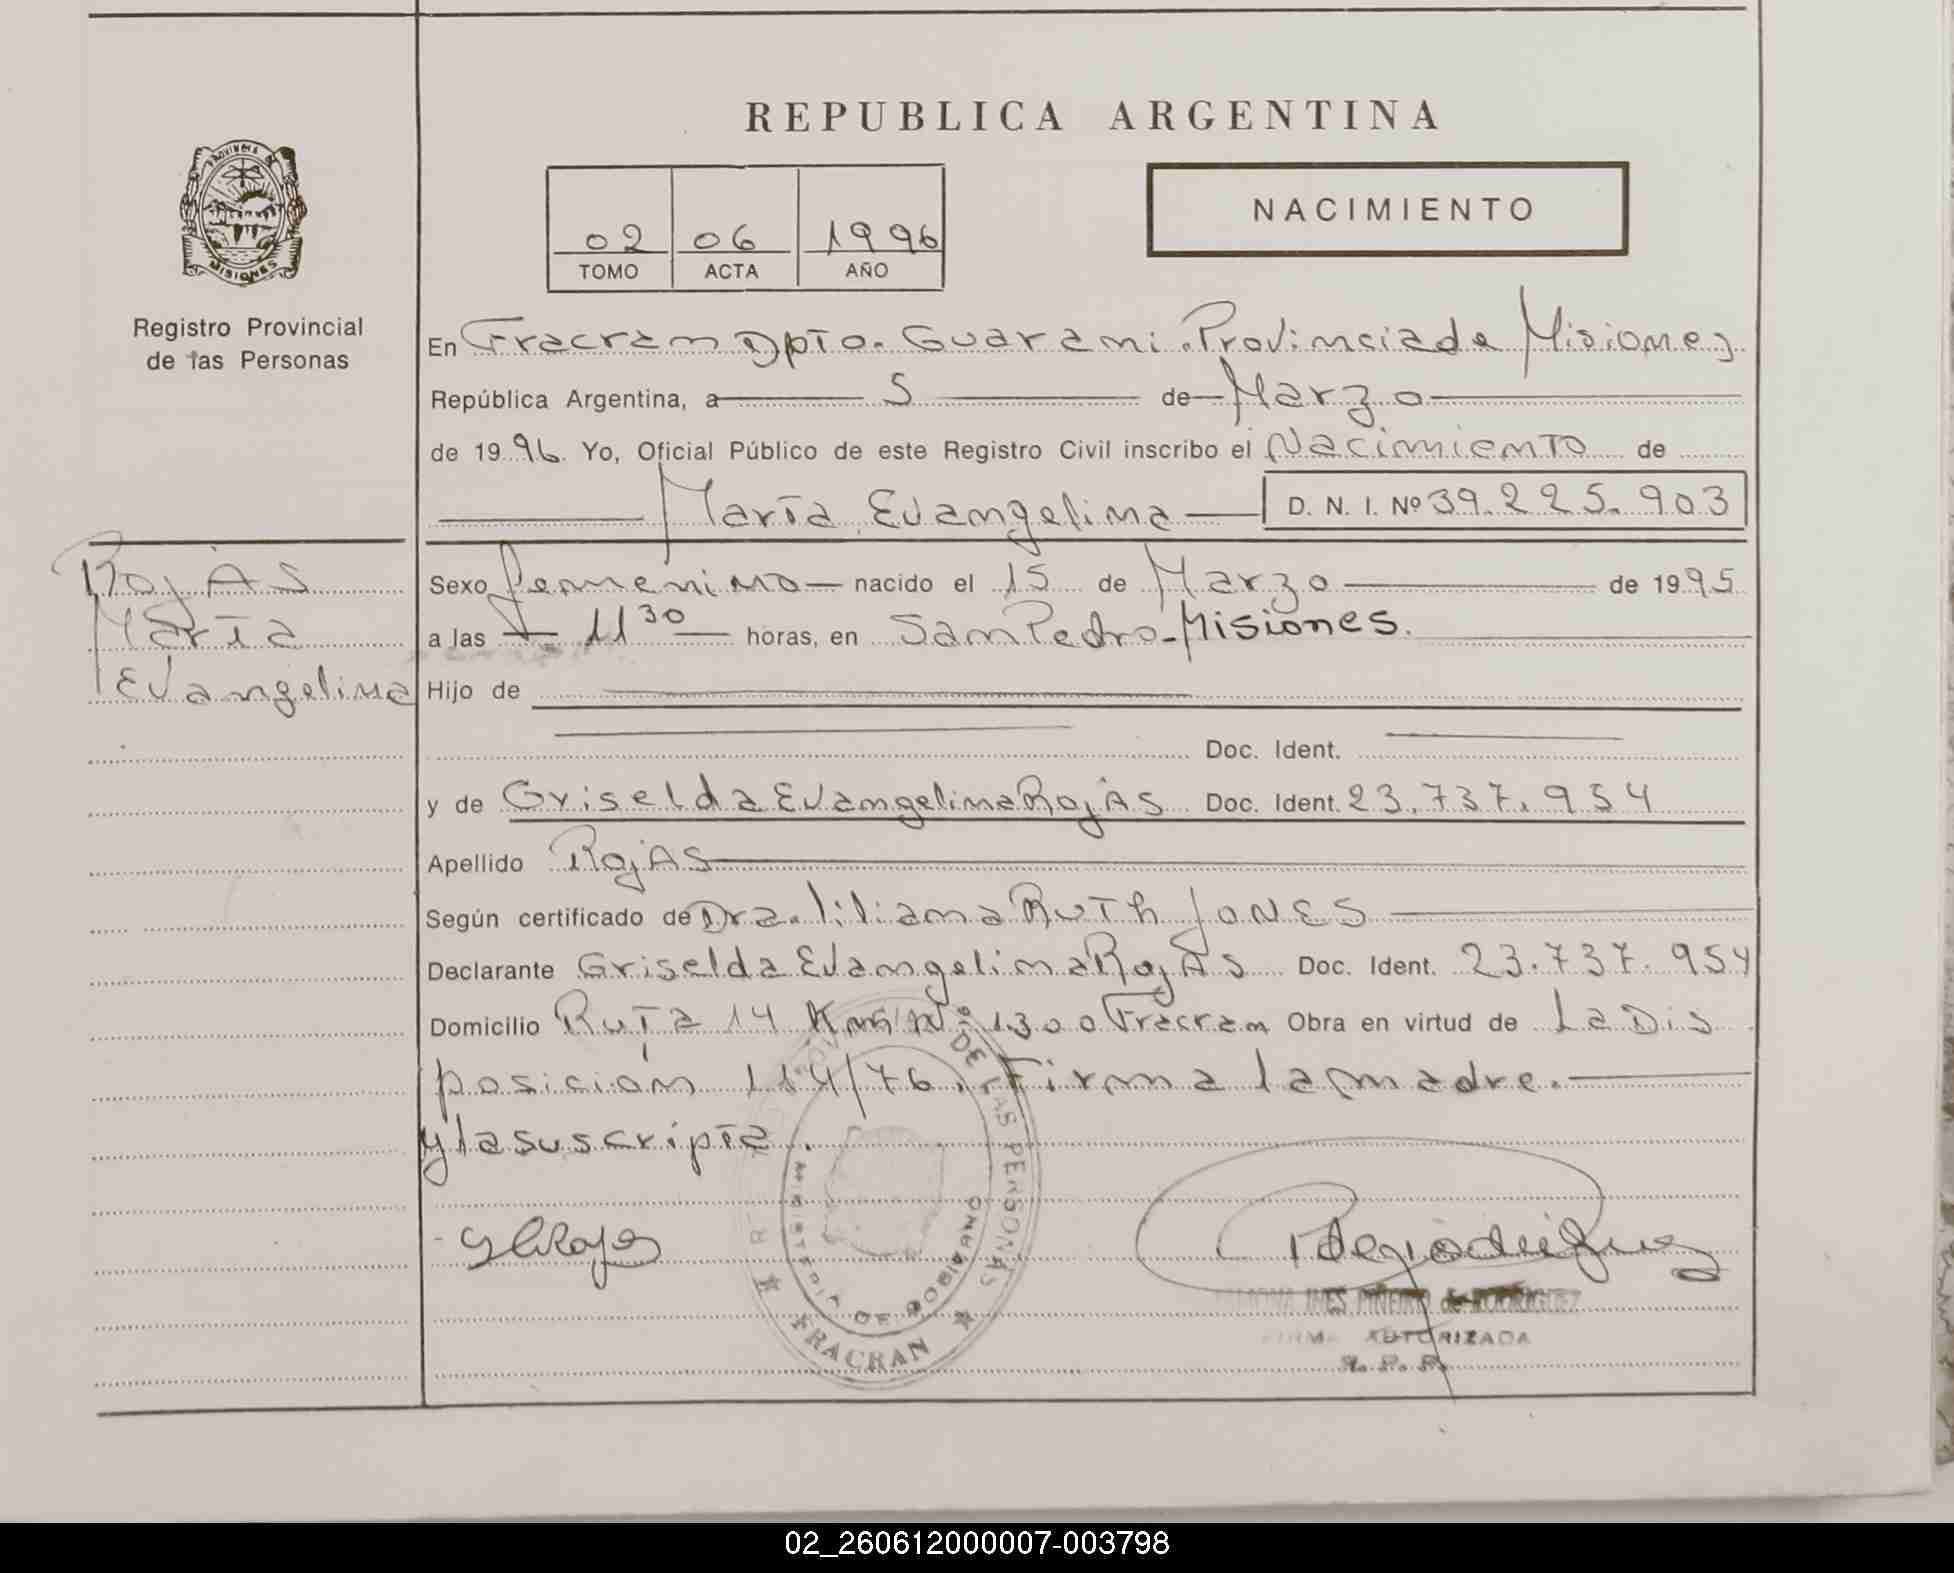 REPUBLICA ARGENTINA
PROVINCIA DE MISIONES
Registro Provincial
de las Personas
02 06 1996
TOMO ACTA AÑO
NACIMIENTO
En Fracram Dpto. Guarami. Provincia de Misiones
República Argentina, a 5 de Marzo
de 1996. Yo, Oficial Público de este Registro Civil inscribo el Nacimiento de
María Evangelina D. N. I. Nº 39.225.903
Rojas
María
Evangelina
Sexo femenino nacido el 15 de Marzo de 1995
a las 11 30 horas, en San Pedro - Misiones.
Hijo de
Doc. Ident.
y de Griselda Evangelina Rojas Doc. Ident. 23.737.954
Apellido Rojas
Según certificado de Dra. liliana Ruth Jones
Declarante Griselda Evangelina Rojas Doc. Ident. 23.737.954
Domicilio Ruta 14 Km Nº 1.300 Fracram Obra en virtud de La Dis
posición 114/76. Firma la madre.
y la suscripta.
DE LAS PERSONAS
MINISTERIO DE GOBIERNO
FRACRAN
INES PIÑEIRO de RODRIGUEZ
FIRMA AUTORIZADA
R. P. P.
02_260612000007-003798